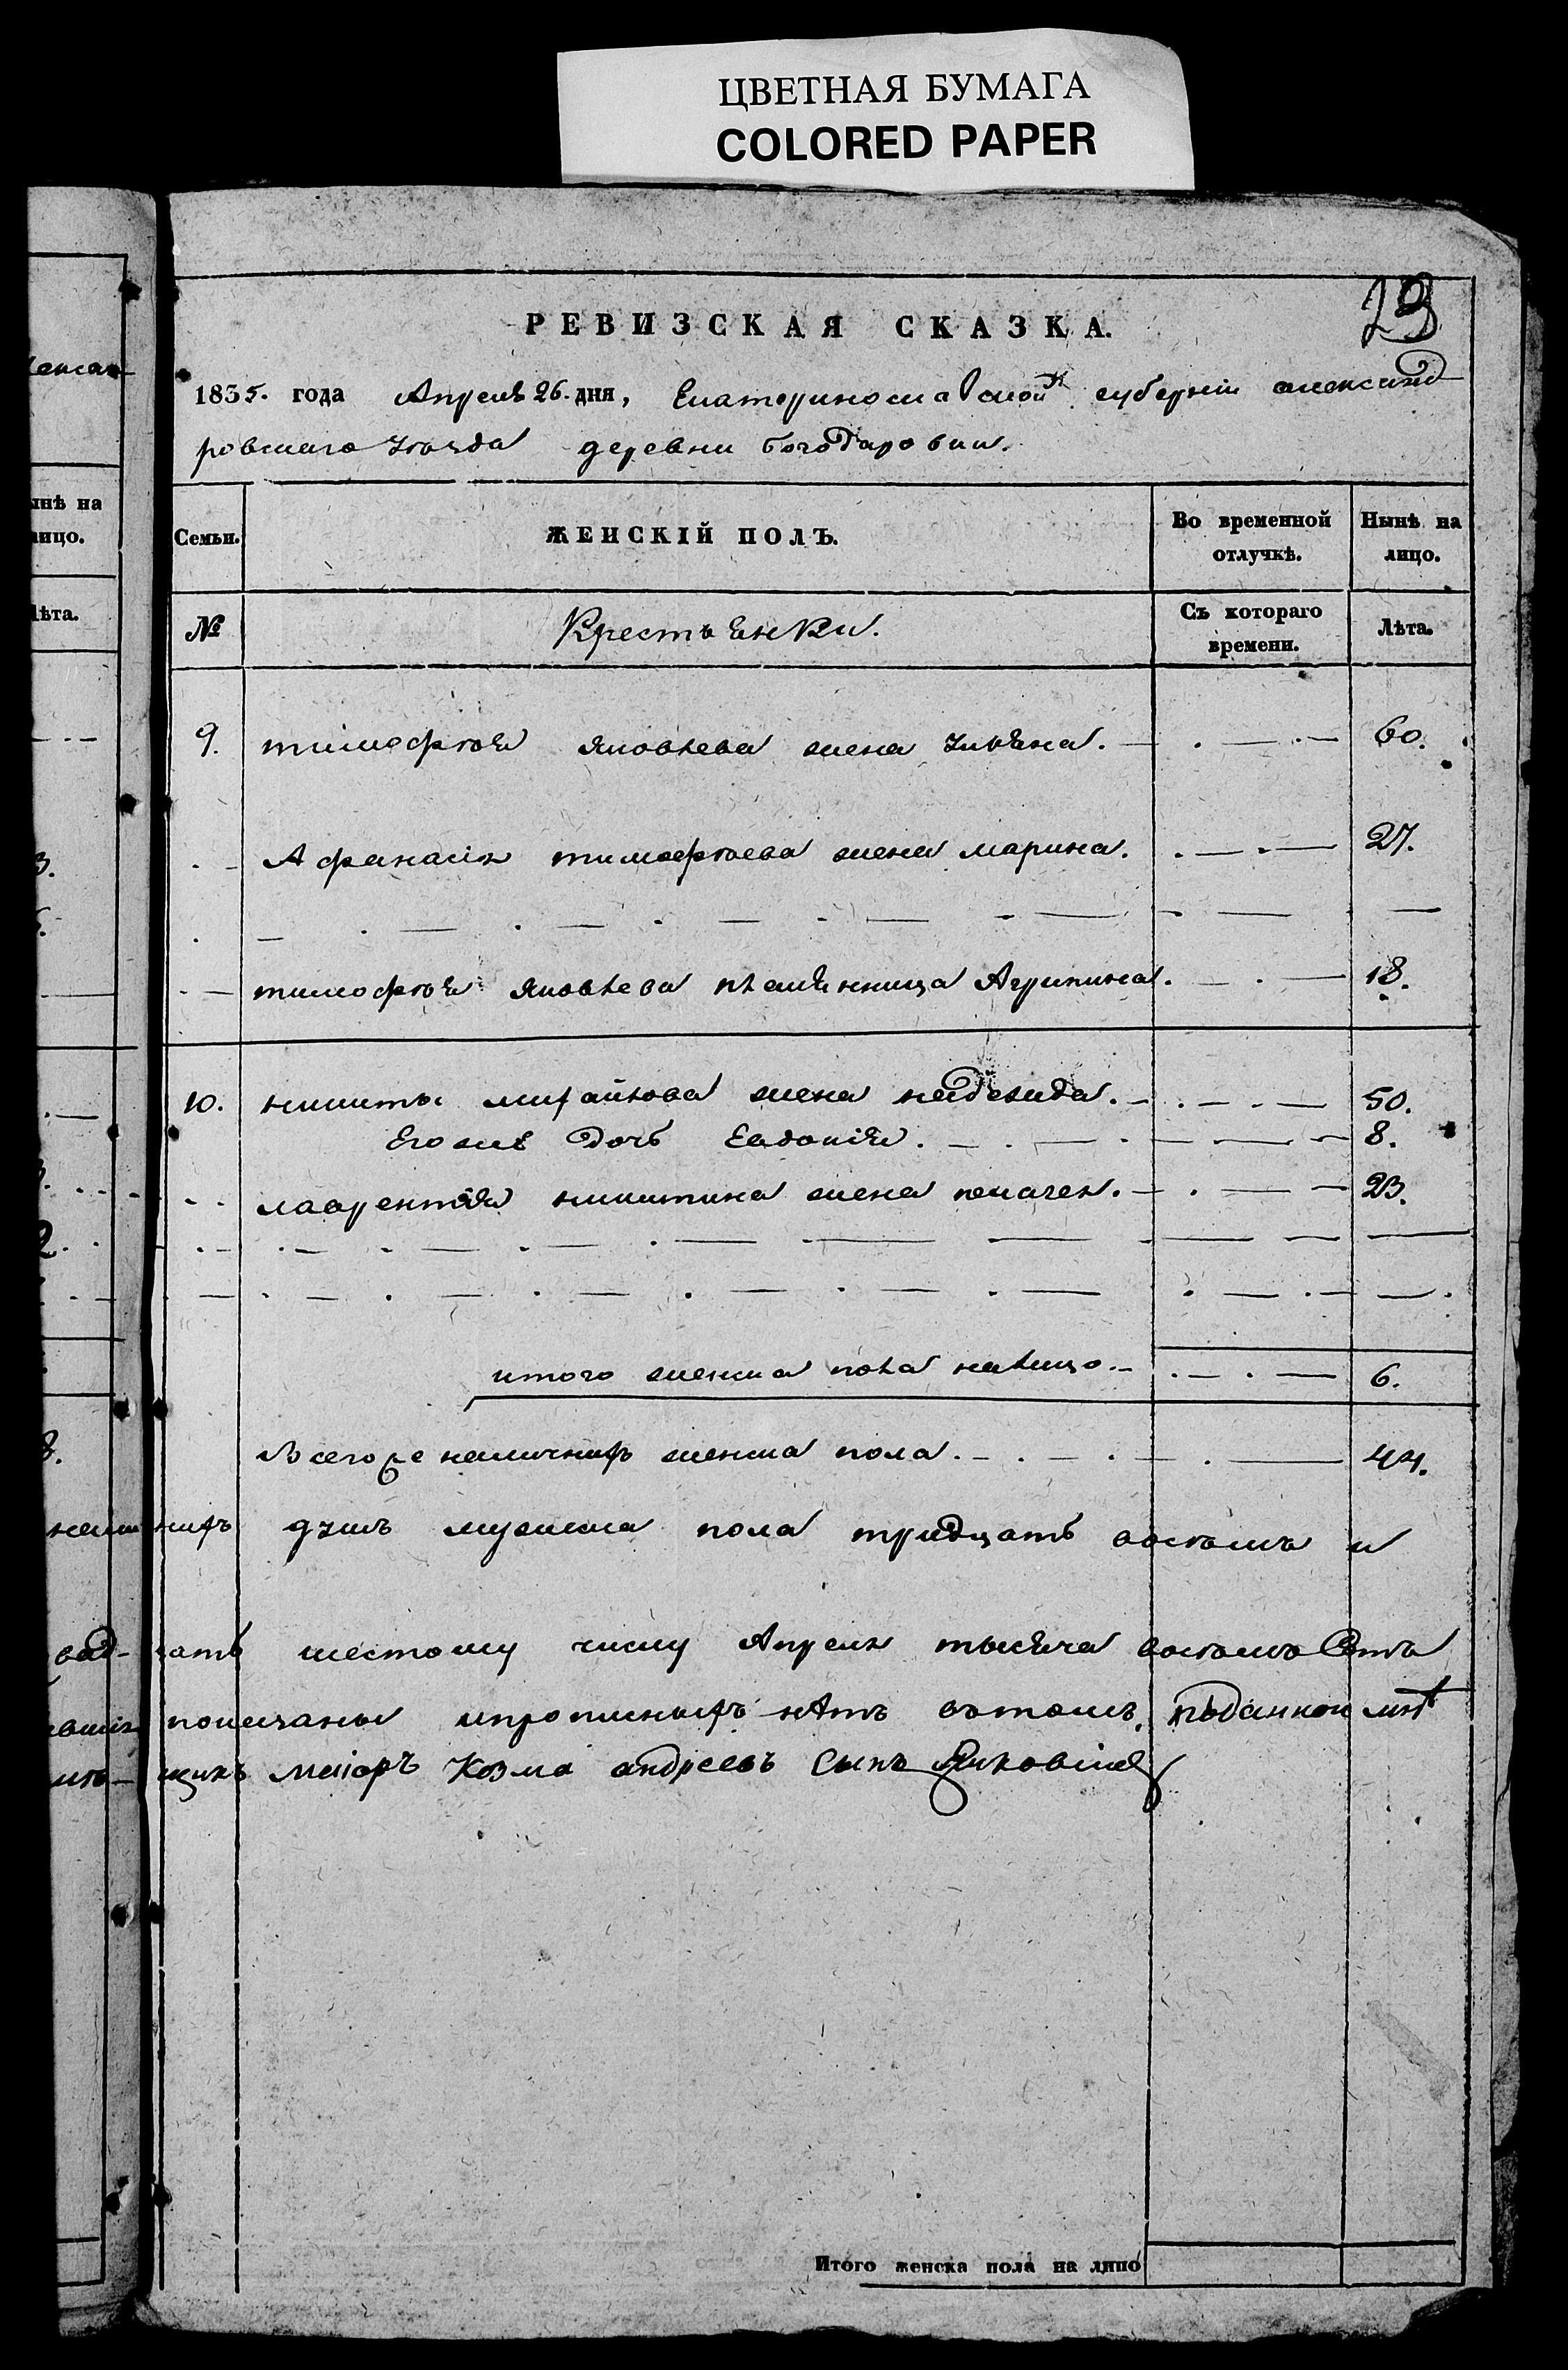 ЦВЕТНАЯ БУМАГА
COLORED PAPER
23
РЕВИЗСКАЯ СКАЗКА.
1835. года Апреля 26. дня, Екатериносла вской губернiи александ
ровскаго уезда деревни богодаровки.
Семьи.
ЖЕНСКІЙ ПОЛЪ.
Во временной отлучкѣ.
Нынѣ на лицо.
№
Крестьянки.
Съ котораго времени.
Лѣта.
9. тимофея яковлева жена ульяна. 60.
Афанасія тимофеева жена марина. 27.
тимофея яковлева племянница Агрипина. 18.
10. никиты михайлова жена надежда. 50.
Его же дочь Евдокія. 8.
лаврентія никитина жена пелагея. 23.
итого женска пола налицо. 6.
Всего же наличныхъ женска пола. 44.
душъ мужеска пола тридцать восемь и
шестому числу Апреля тысяча восемь Сотъ
показаны ипрописныхъ нѣтъ вътомъ
маіоръ Козма андреевъ Сынъ
Итого женска пола на лицо
ынѣ на
лицо.
Лѣта.